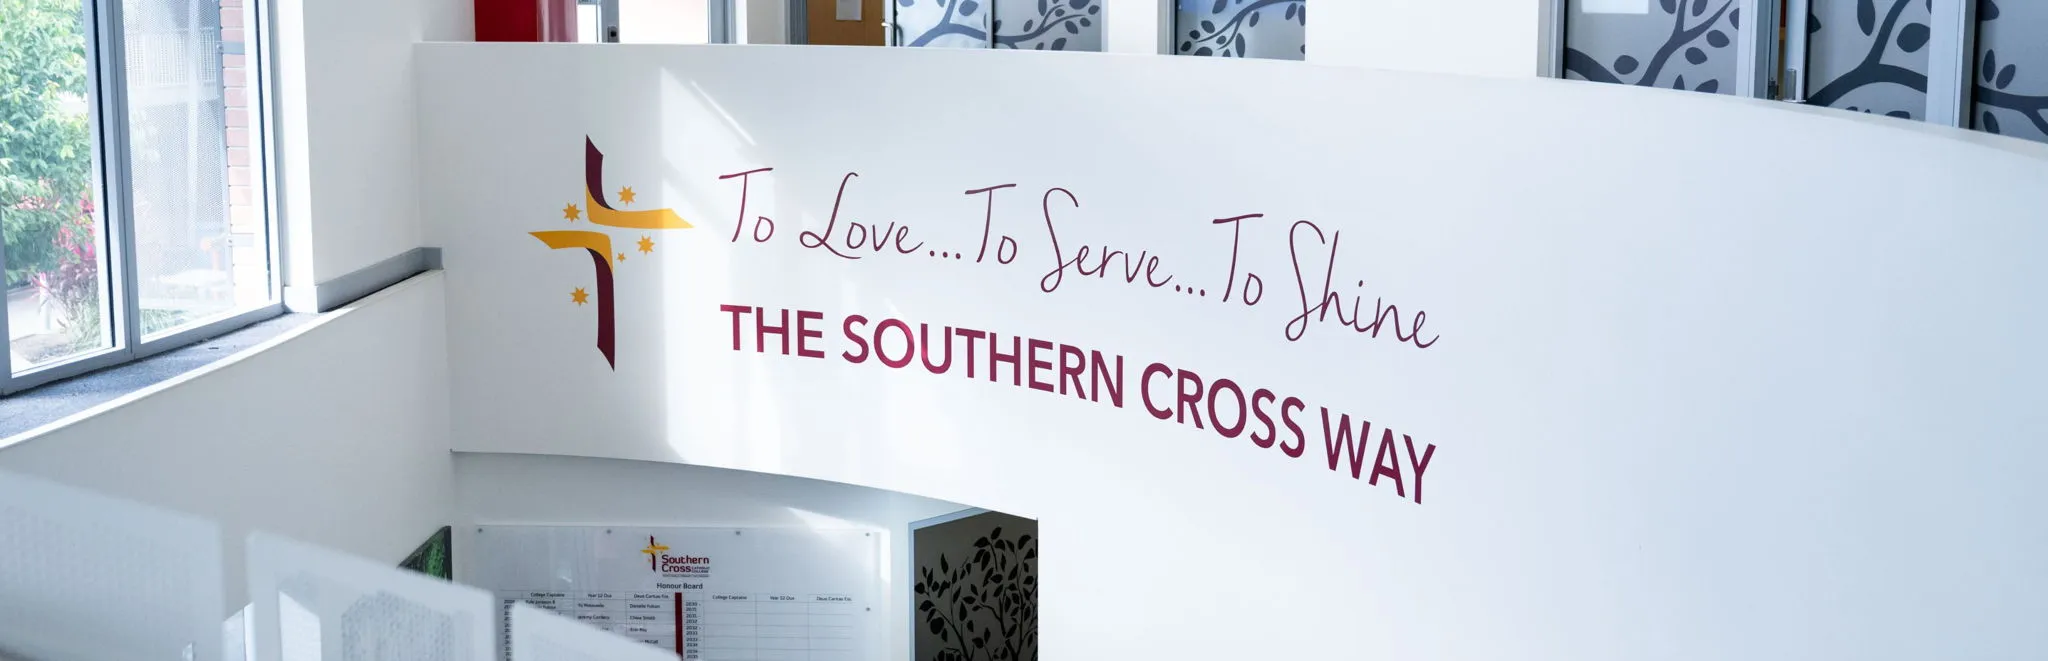 To Love...To Serve...To Shine
THE SOUTHERN CROSS WAY
Southern
Cross CATHOLIC COLLEGE
Honour Board
College Captains Year 12 Dux Deus Caritas Est College Captains Year 12 Dux Deus Caritas Est
Danielle Yuksel
Chloe Smith